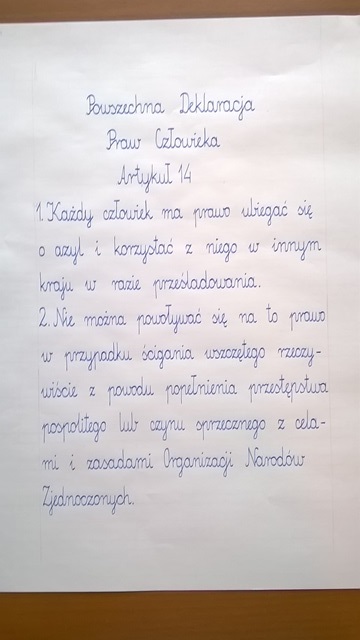 Powszechna Deklaracja
Praw Człowieka
Artykuł 14
1. Każdy człowiek ma prawo ubiegać się
o azyl i korzystać z niego w innym
kraju w razie prześladowania.
2. Nie można powoływać się na to prawo
w przypadku ścigania wszczętego rzeczy-
wiście z powodu popełnienia przestępstwa
pospolitego lub czynu sprzecznego z cela-
mi i zasadami Organizacji Narodów
Zjednoczonych.